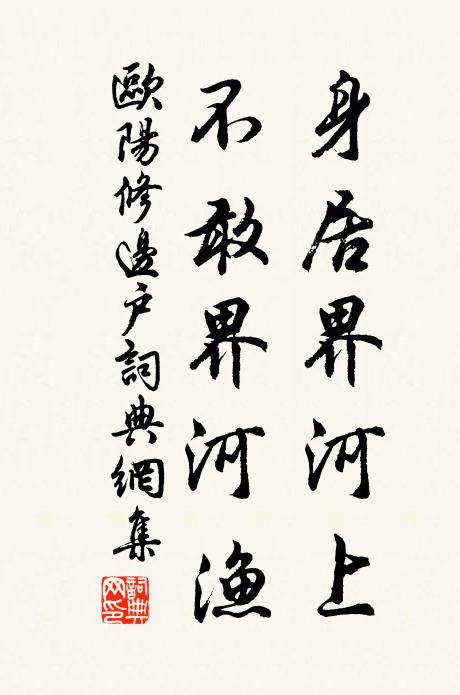 身居界河上
不敢界河漁
歐陽修邊户詞典網集
詞典網印